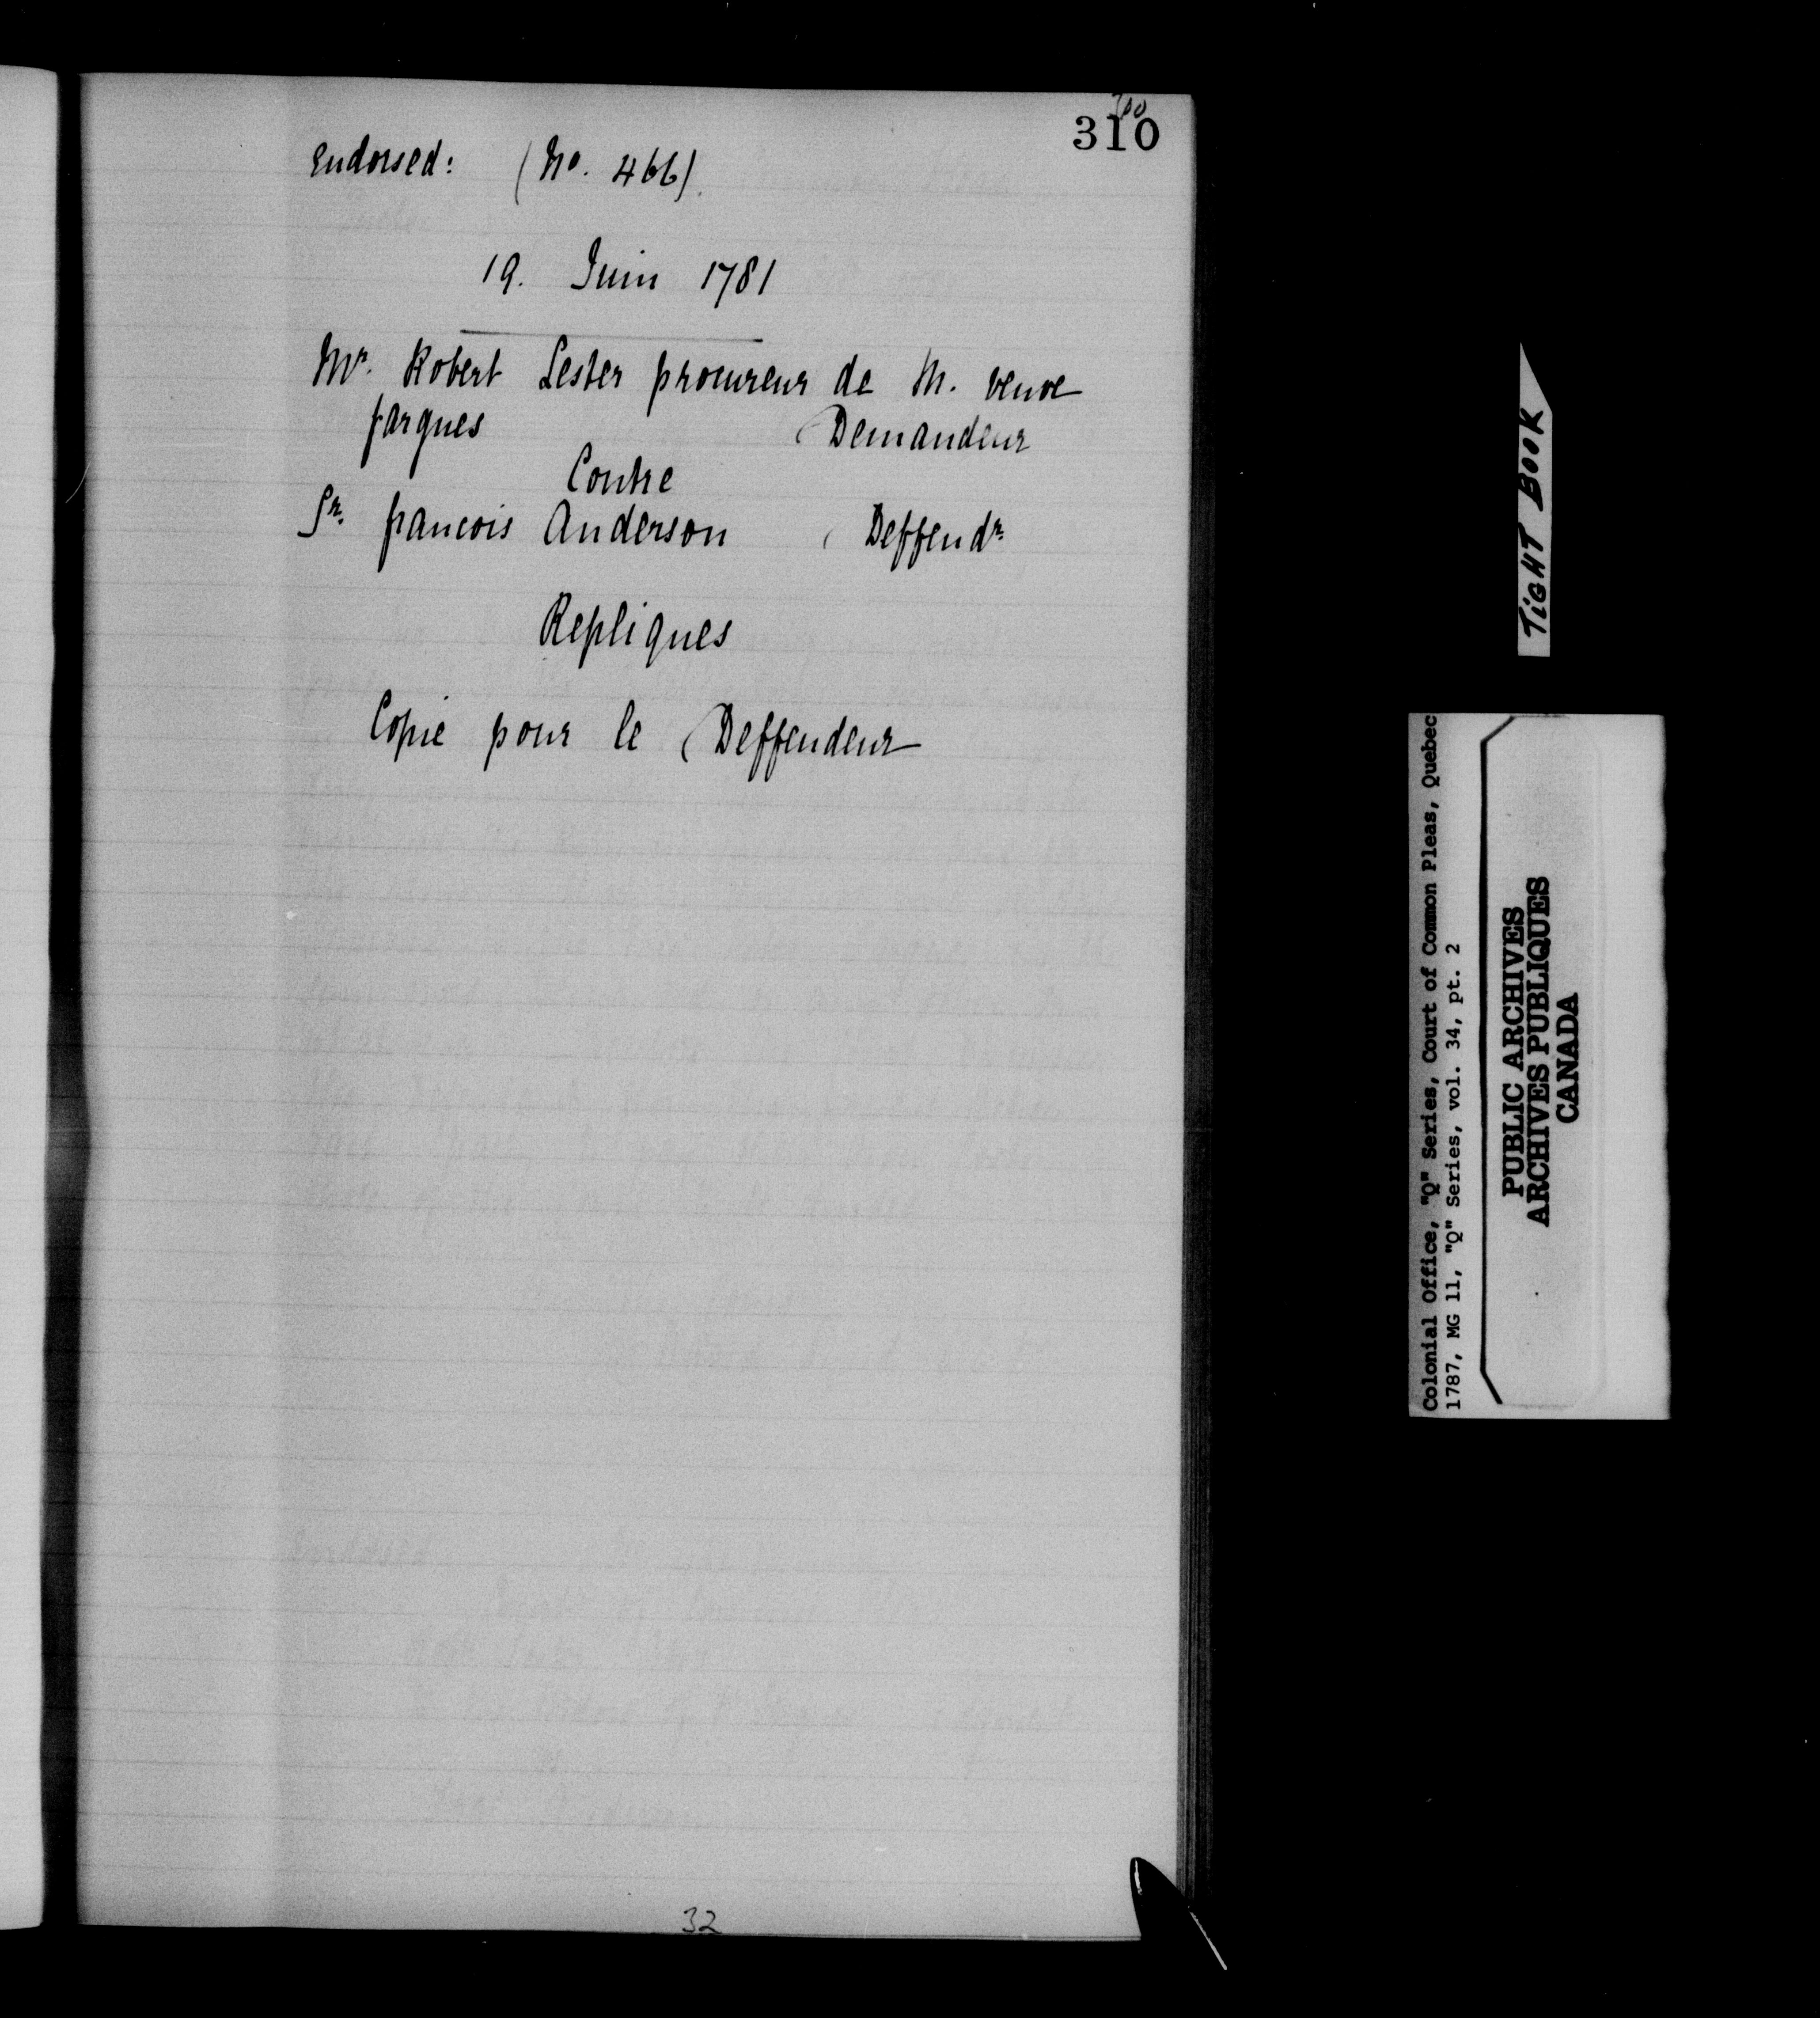 310
Endorsed: (No. 466).
19. Juin 1781
Mr. Robert Lester procureur de M. veuve
fargues Demandeur
Contre
Sr. francois Anderson Deffendr
Repliques
Copie pour le Deffendeur
32
TiGHT BOOK
Colonial Office, "Q" Series, Court of Common Pleas, Quebec
1787, MG 11, "Q" Series, vol. 34, pt. 2
PUBLIC ARCHIVES
ARCHIVES PUBLIQUES
CANADA